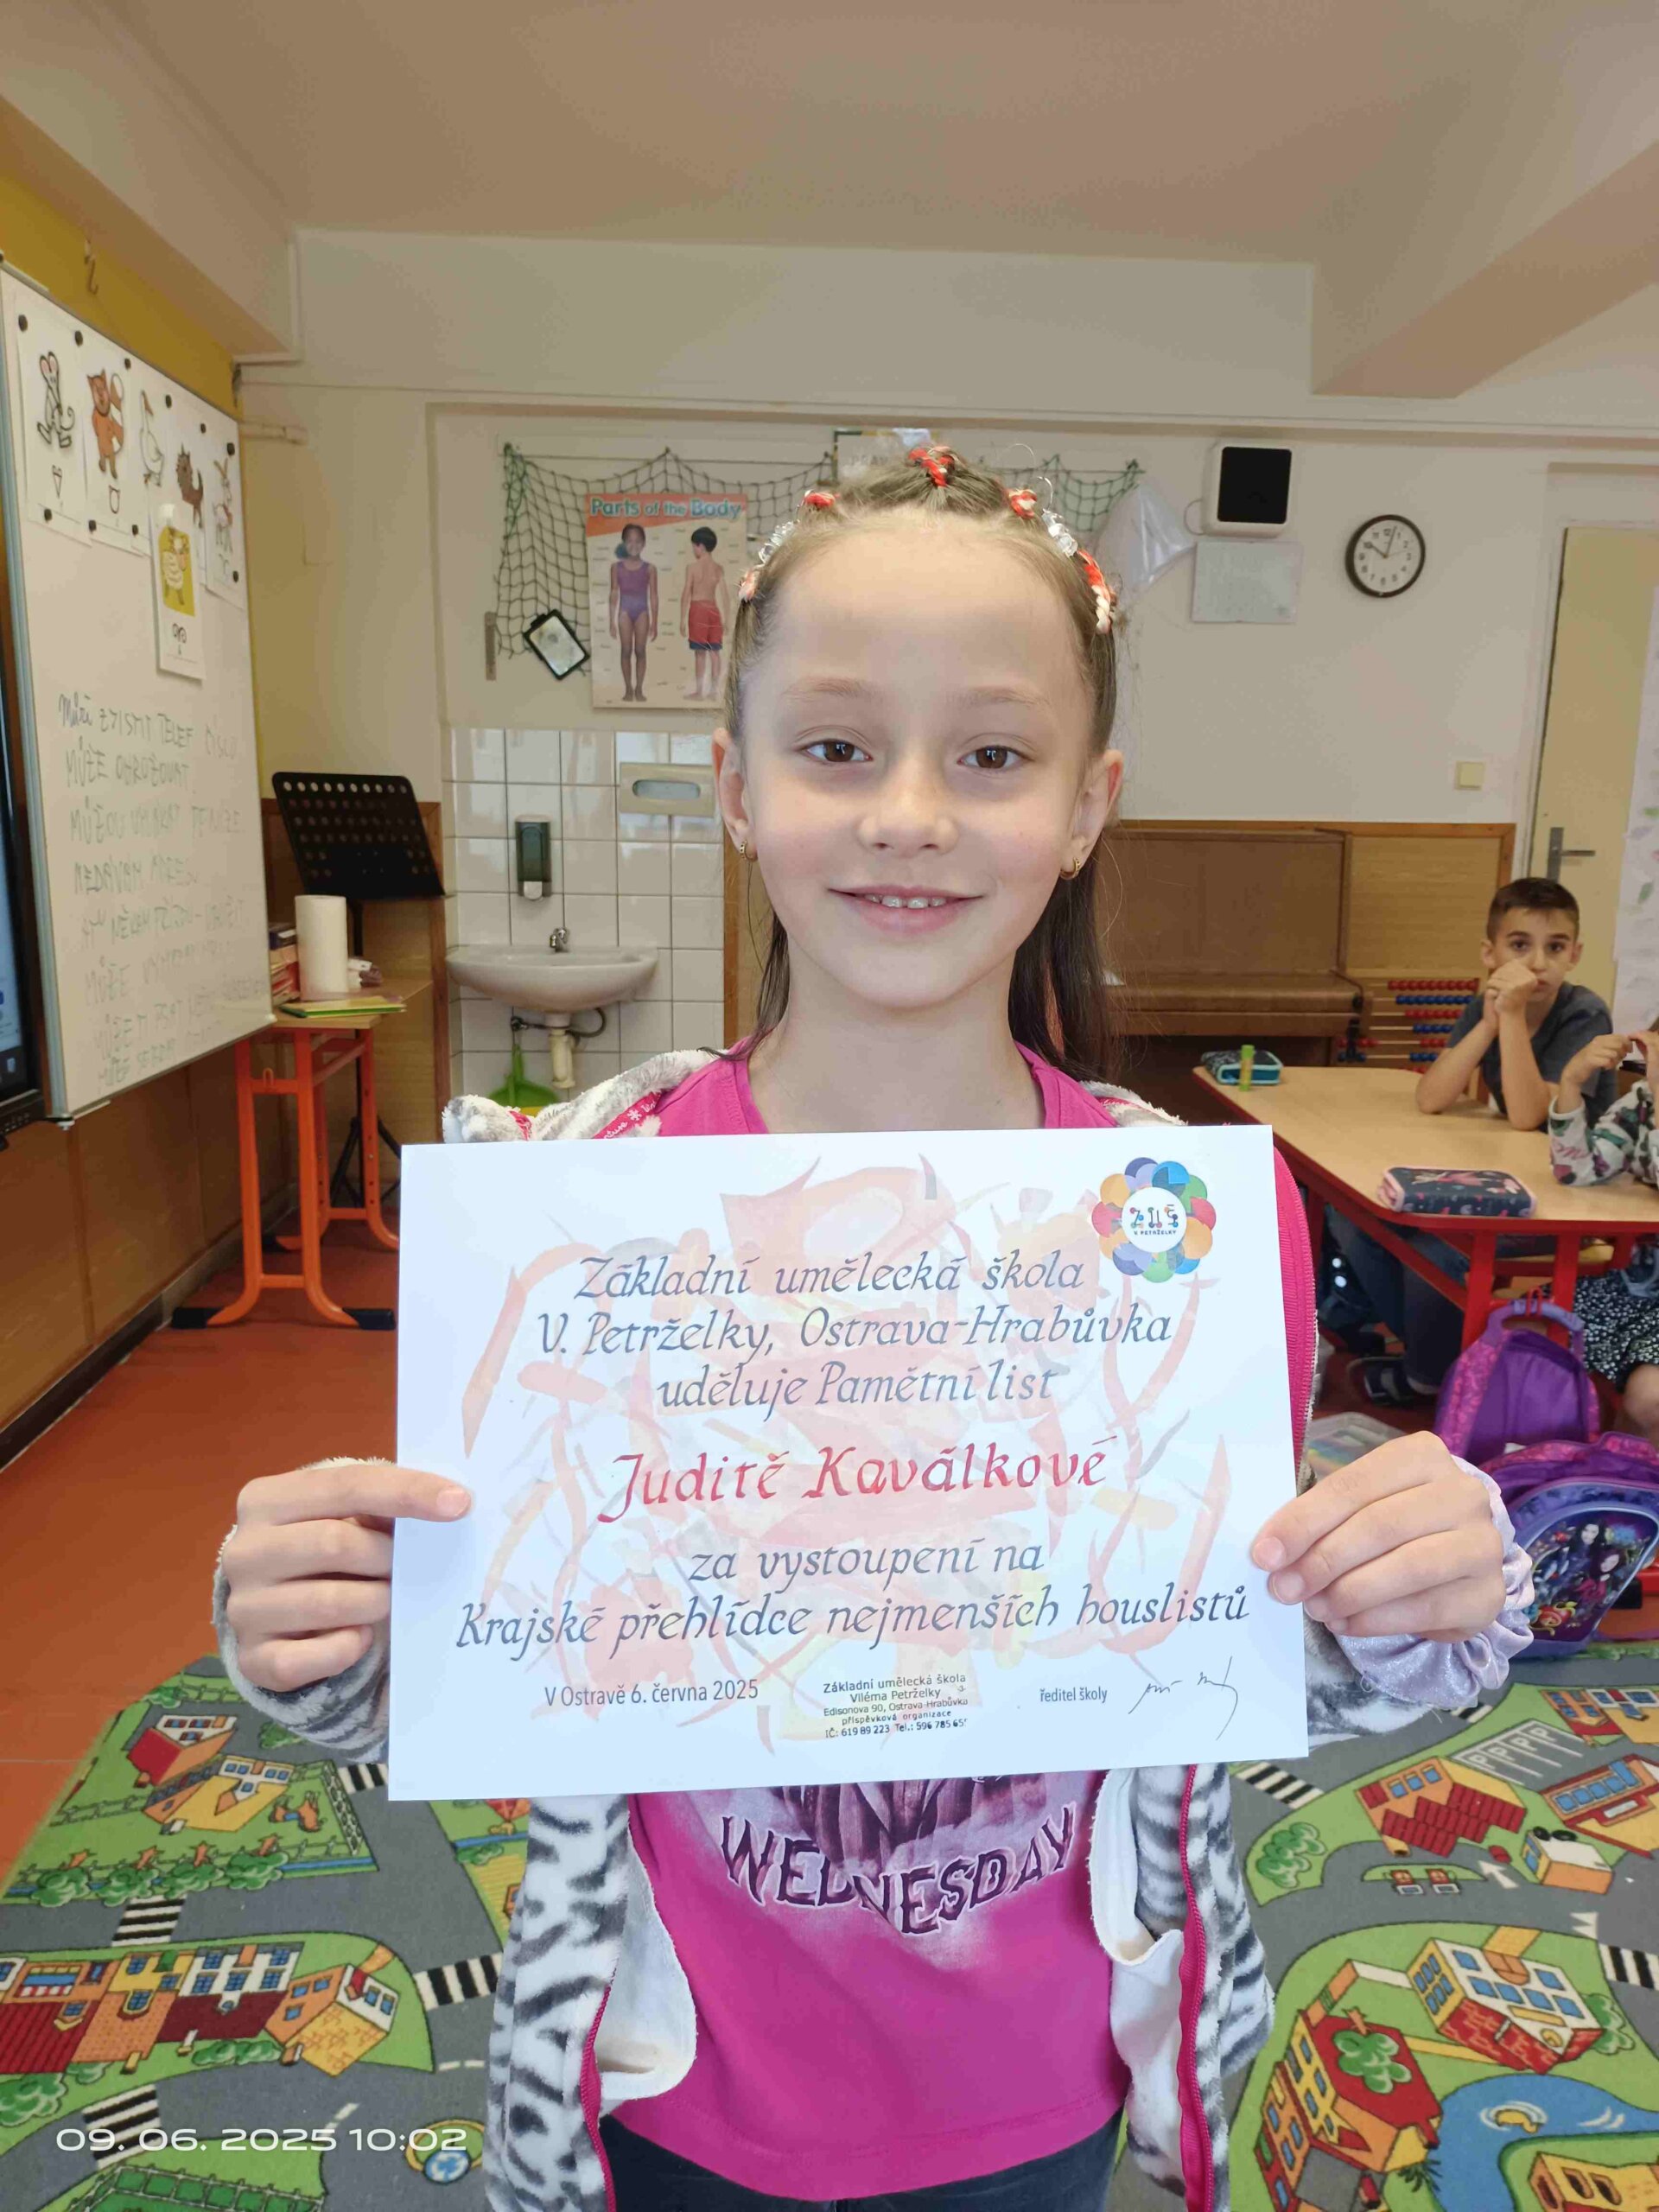 Parts of the Body
MŮŽE
MŮŽE
ZUŠ
V. PETRŽELKY
Základní umělecká škola
V. Petrželky, Ostrava-Hrabůvka
uděluje Pamětní list
Juditě Kaválkové
za vystoupení na
Krajské přehlídce nejmenších houslistů
V Ostravě 6. června 2025
Základní umělecká škola
Viléma Petrželky
Edisonova 90, Ostrava-Hrabůvka
příspěvková organizace
IČ: 619 89 223 Tel.: 596 785 657
ředitel školy
WEDNESDAY
09. 06. 2025 10:02